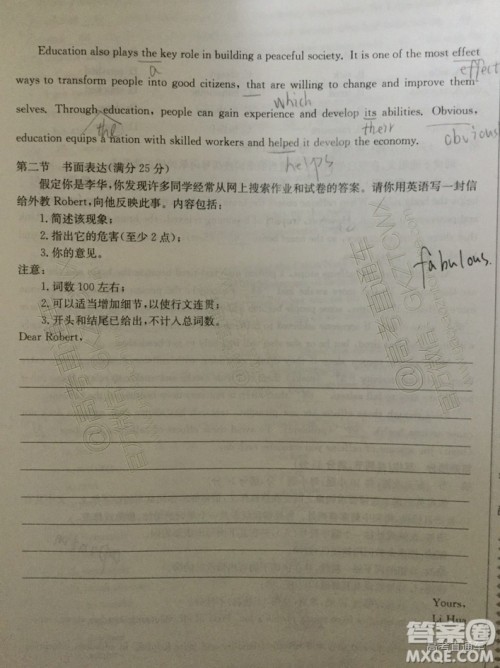 Education also plays the key role in building a peaceful society. It is one of the most effect
a
effect
ways to transform people into good citizens, that are willing to change and improve them-
which
selves. Through education, people can gain experience and develop its abilities. Obvious,
the
their
obvious
education equips a nation with skilled workers and helped it develop the economy.
helps
第二节 书面表达(满分25分)
假定你是李华,你发现许多同学经常从网上搜索作业和试卷的答案。请你用英语写一封信
给外教Robert,向他反映此事。内容包括:
1.简述该现象;
2.指出它的危害(至少2点);
3.你的意见。
fabulous.
注意:
1.词数100左右;
2.可以适当增加细节,以使行文连贯;
3.开头和结尾已给出,不计入总词数。
Dear Robert,
Yours,
Li Hua
答案圈
MXQE.COM